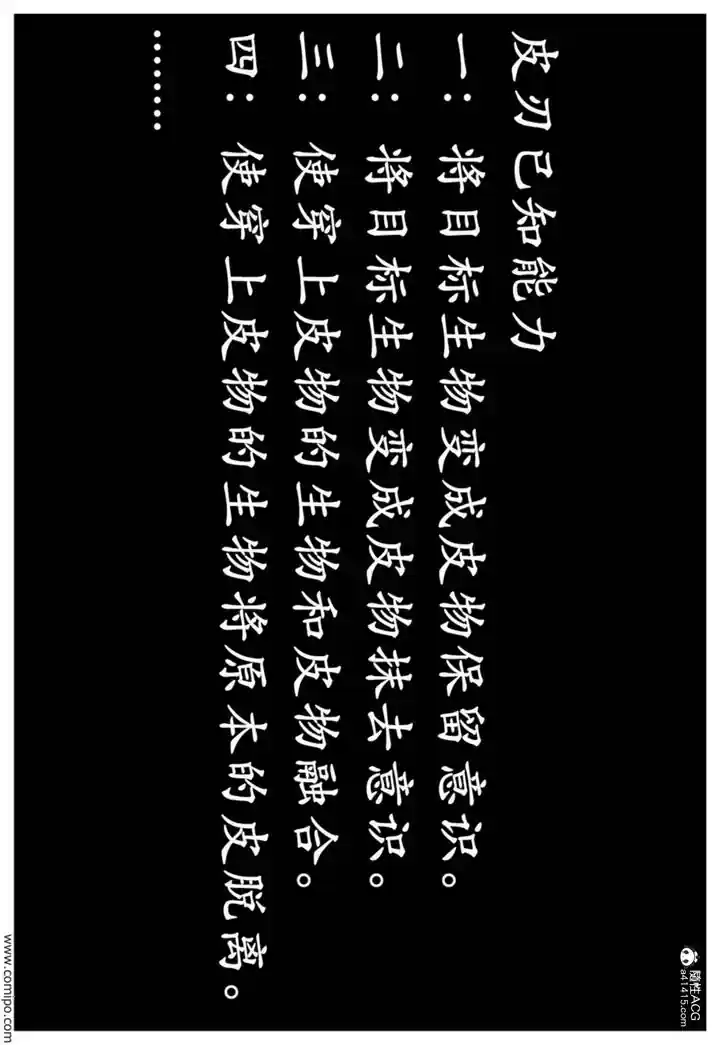 皮刃已知能力
一：将目标生物变成皮物保留意识。
二：将目标生物变成皮物抹去意识。
三：使穿上皮物的生物和皮物融合。
四：使穿上皮物的生物将原本的皮脱离。
........
www.comipo.com
隨性ACG
a41415.com